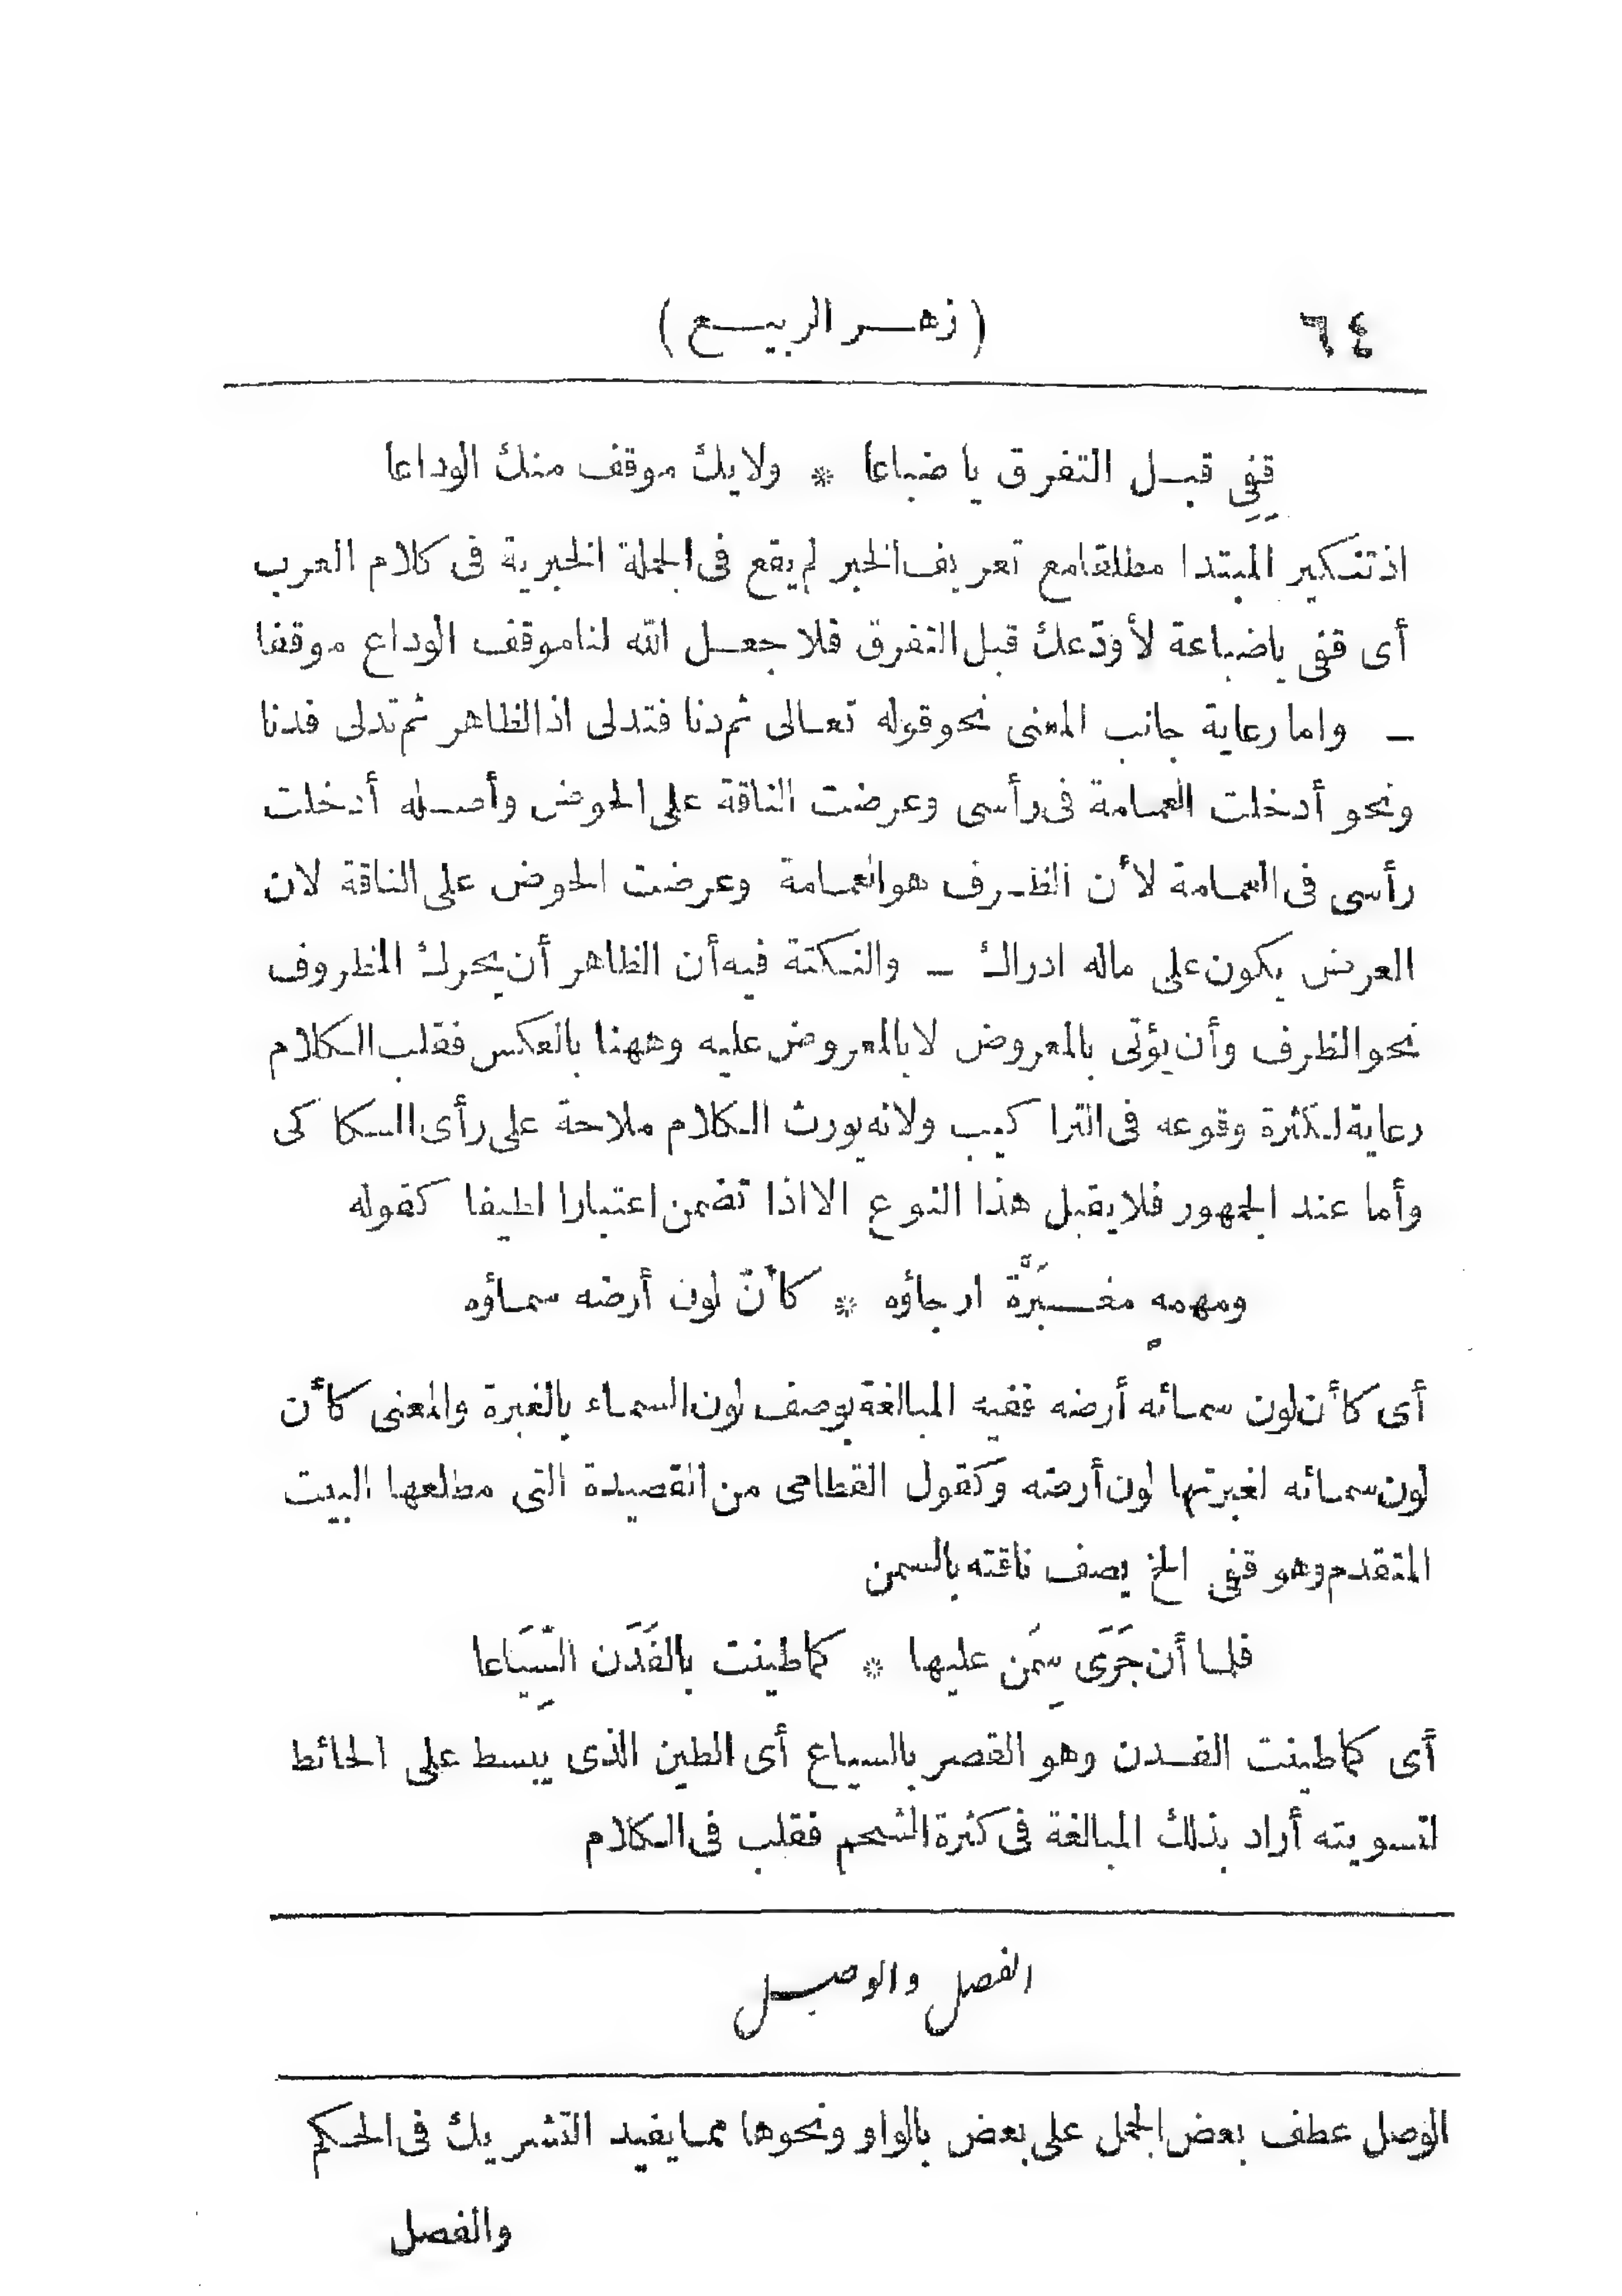 ٦٤ (زهر الربيع)
قِفِى قبل التفرق يا ضباعا * ولايك موقف منك الوداعا
اذ تنكير المبتدا مطلقا مع تعريف الخبر لم يقع فى الجملة الخبرية فى كلام العرب
أى قفى ياضباعة لأودّعك قبل التفرق فلا جعل الله لنا موقف الوداع موقفا
ــ واما رعاية جانب المعنى نحو قوله تعالى ثم دنا فتدلى اذ الظاهر ثم تدلى فدنا
ونحو أدخلت العمامة فى رأسى وعرضت الناقة على الحوض وأصله أدخلت
رأسى فى العمامة لأن الظرف هو العمامة وعرضت الحوض على الناقة لان
العرض يكون على ماله ادراك ــ والنكتة فيه أن الظاهر أن يحرك المظروف
نحو الظرف وأن يؤتى بالمعروض لا بالمعروض عليه وههنا بالعكس فقلب الكلام
رعاية لكثرة وقوعه فى التراكيب ولانه يورث الكلام ملاحة على رأى السكاكى
وأما عند الجمهور فلا يقبل هذا النوع الا اذا تضمن اعتبارا لطيفا كقوله
ومهمهٍ مغبَرَّة ارجاؤه * كأنّ لون أرضه سماؤه
أى كأن لون سمائه أرضه ففيه المبالغة بوصف لون السماء بالغبرة والمعنى كأن
لون سمائه لغبرتها لون أرضه وكقول القطامى من القصيدة التى مطلعها البيت
المتقدم وهو قفى الخ يصف ناقته بالسمن
فلما أن جَرَى سِمَن عليها * كما طينت بالفَدَن السِّيَاعا
أى كما طينت الفدن وهو القصر بالسياع أى الطين الذى يبسط على الحائط
لتسويته أراد بذلك المبالغة فى كثرة الشحم فقلب فى الكلام
الفصل والوصل
الوصل عطف بعض الجمل على بعض بالواو ونحوها مما يفيد التشريك فى الحكم
والفصل